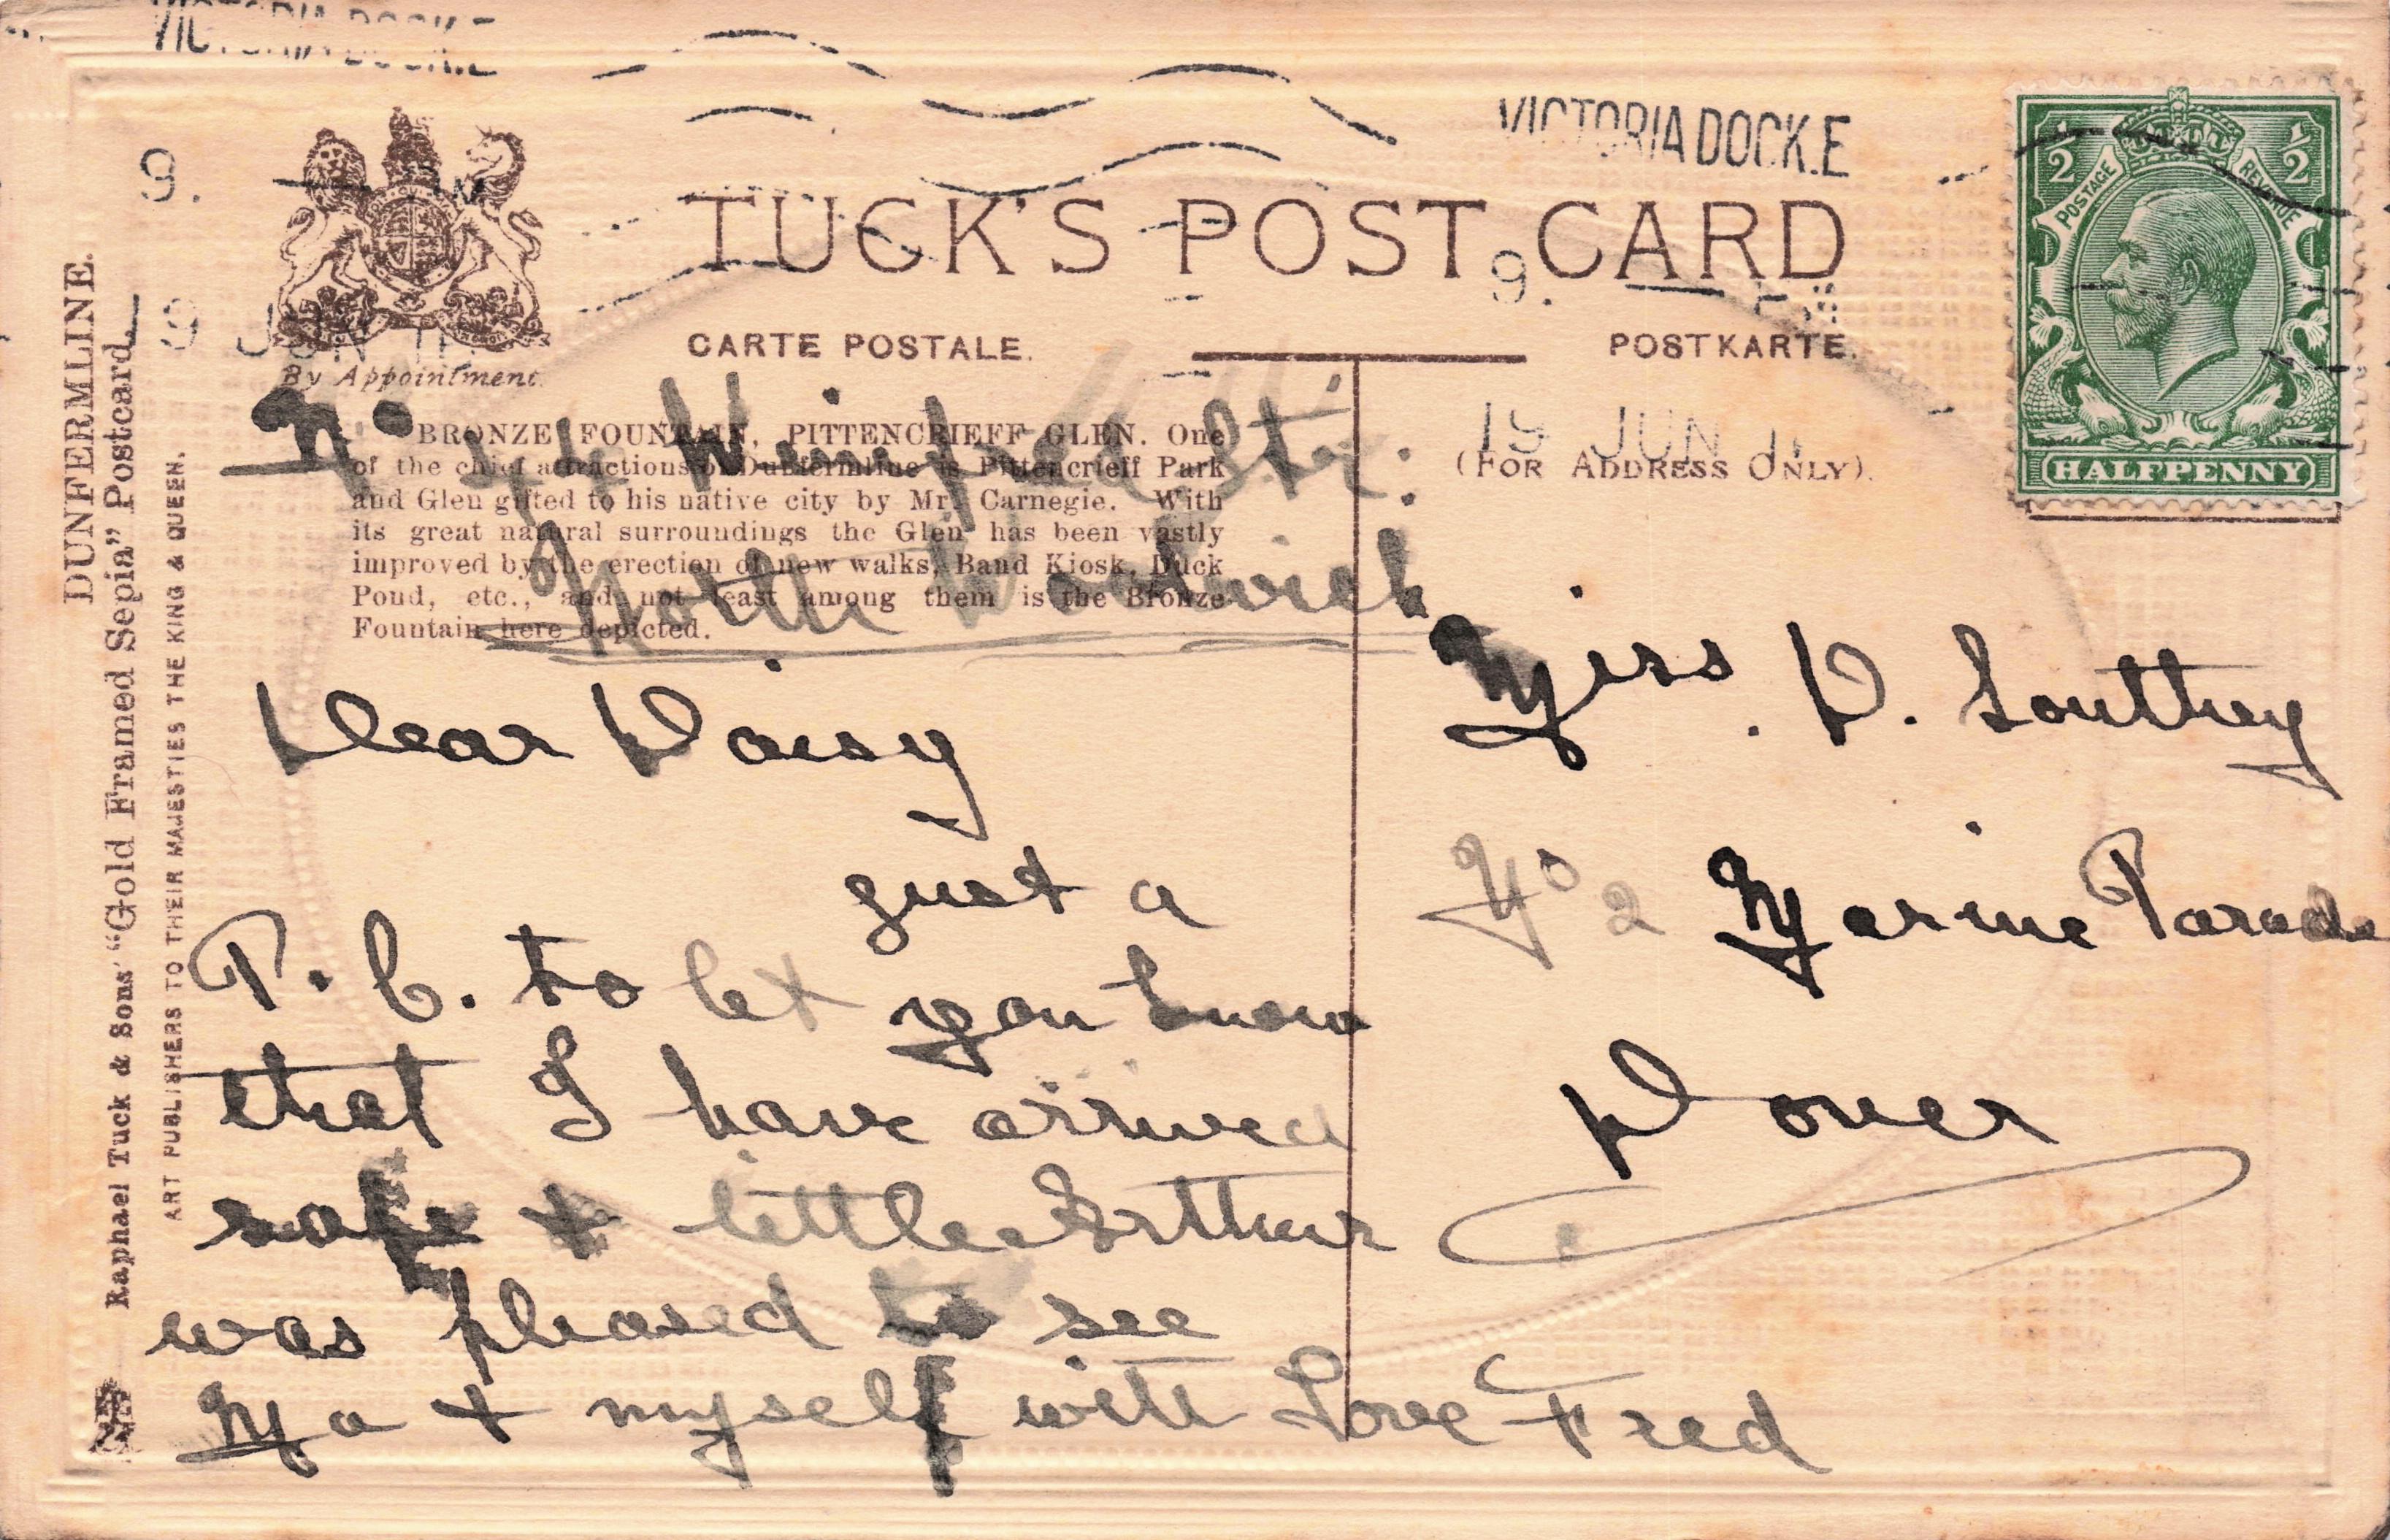 VICTORIA DOCK.E
VICTORIA DOCK.E
TUCK'S POST CARD
CARTE POSTALE.
POSTKARTE.
By Appointment.
(FOR ADDRESS ONLY).
19 JUN
POSTAGE
REVENUE
1/2
1/2
HALFPENNY
DUNFERMLINE.
Raphael Tuck & Sons' "Gold Framed Sepia" Postcard
ART PUBLISHERS TO THEIR MAJESTIES THE KING & QUEEN.
BRONZE FOUNTAIN, PITTENCRIEFF GLEN. One
of the chief attractions of Dunfermline is Pittencrieff Park
and Glen gifted to his native city by Mr. Carnegie. With
its great natural surroundings the Glen has been vastly
improved by the erection of new walks, Band Kiosk, Duck
Pond, etc., and not least among them is the Bronze
Fountain here depicted.
No
North Woolwich
Dear Daisy
just a
P. C. to let you know
that I have arrived
safe & little Arthur
was pleased to see
Ma & myself with Love Fred
Miss. D. Southey
No 2 Marine Parade
Dover